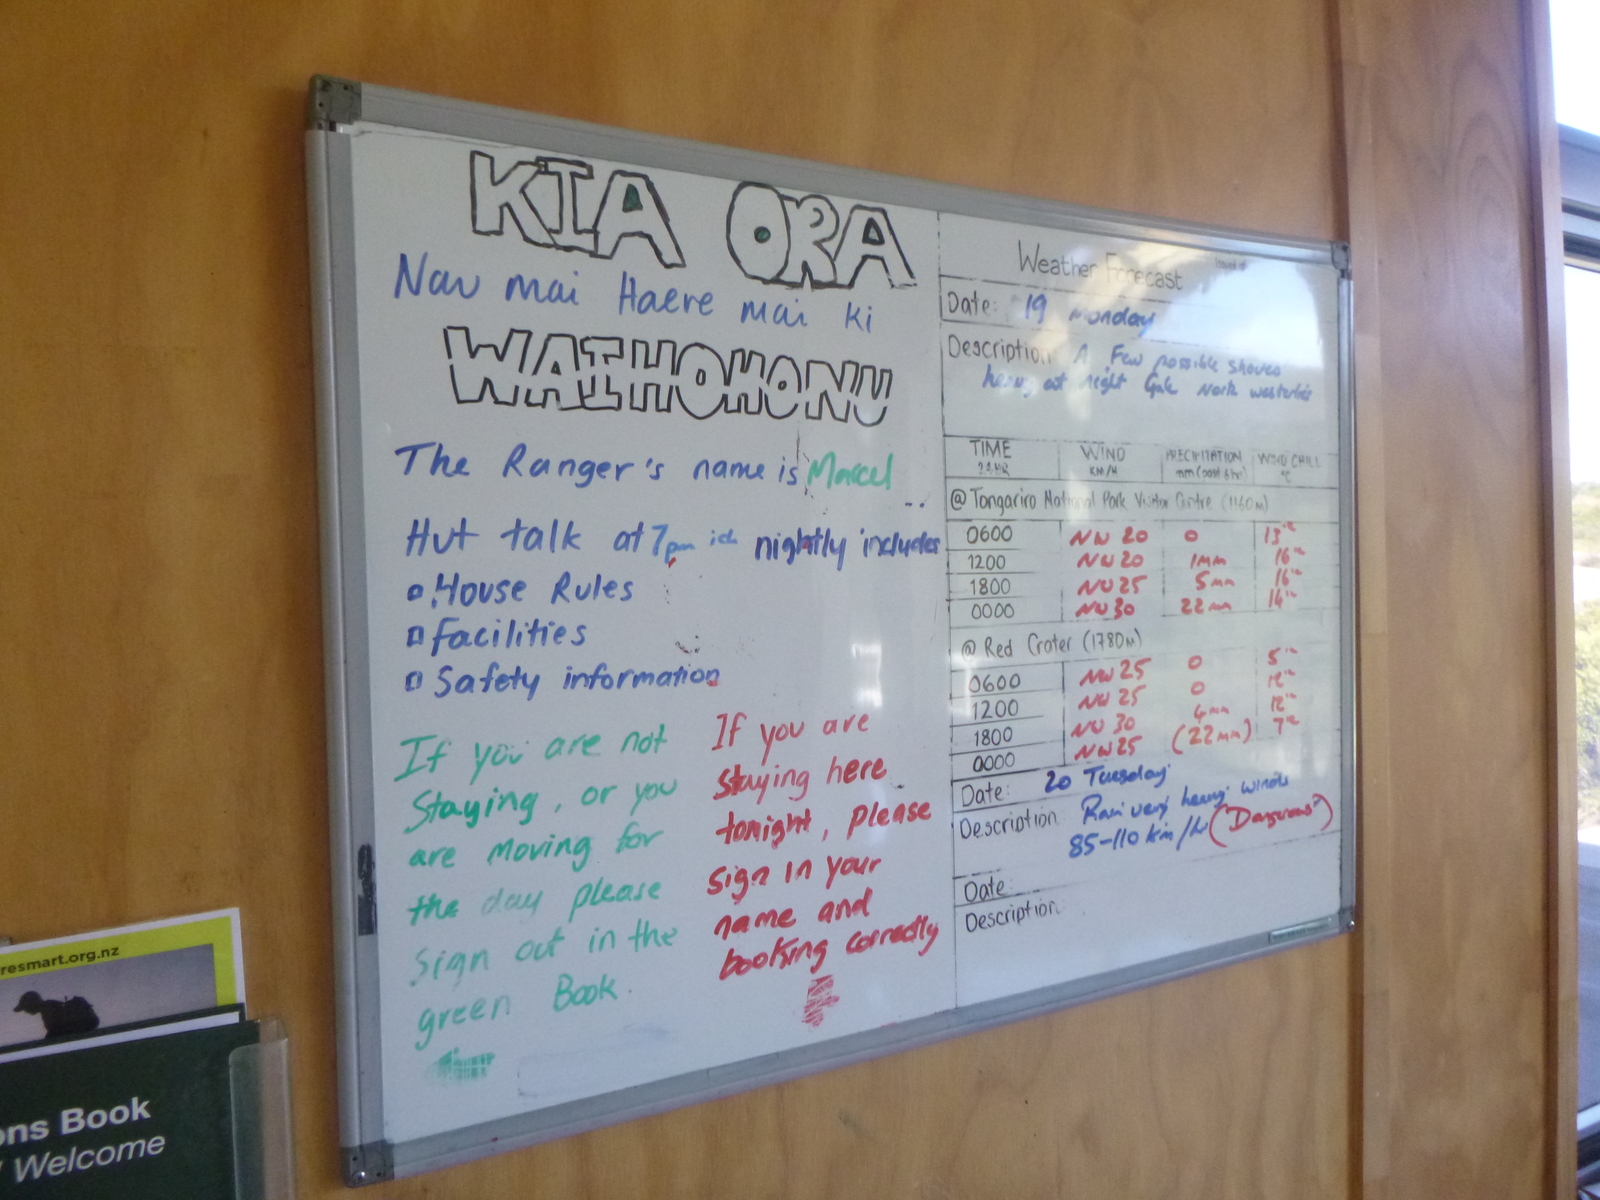 KIA ORA
Nau mai Haere mai ki
WAIHOHONU
The Ranger's name is Marcel
Hut talk at 7pm nightly includes
House Rules
Facilities
Safety information
If you are not
staying, or you
are moving for
the day please
sign out in the
green Book
If you are
staying here
tonight, please
sign in your
name and
booking correctly
Weather Forecast
Date: 19 Monday
Description: A Few possible showers
heavy at night Gale North westerlies
TIME WIND PRECIPITATION WIND CHILL
24HR KM/H mm (past 6 hr) °C
@ Tongariro National Park Visitor Centre (1160M)
0600 NW 20 0 13°C
1200 NW 20 1mm 16°C
1800 NW 25 5mm 16°C
0000 NW 30 22mm 14°C
@ Red Crater (1780M)
0600 NW 25 0 5°C
1200 NW 25 0 12°C
1800 NW 30 4mm 12°C
0000 NW 25 (22mm) 7°C
Date: 20 Tuesday
Description: Rain very heavy winds
85-110 km/hr ("Dangerous")
Date:
Description:
resmart.org.nz
ons Book
Welcome